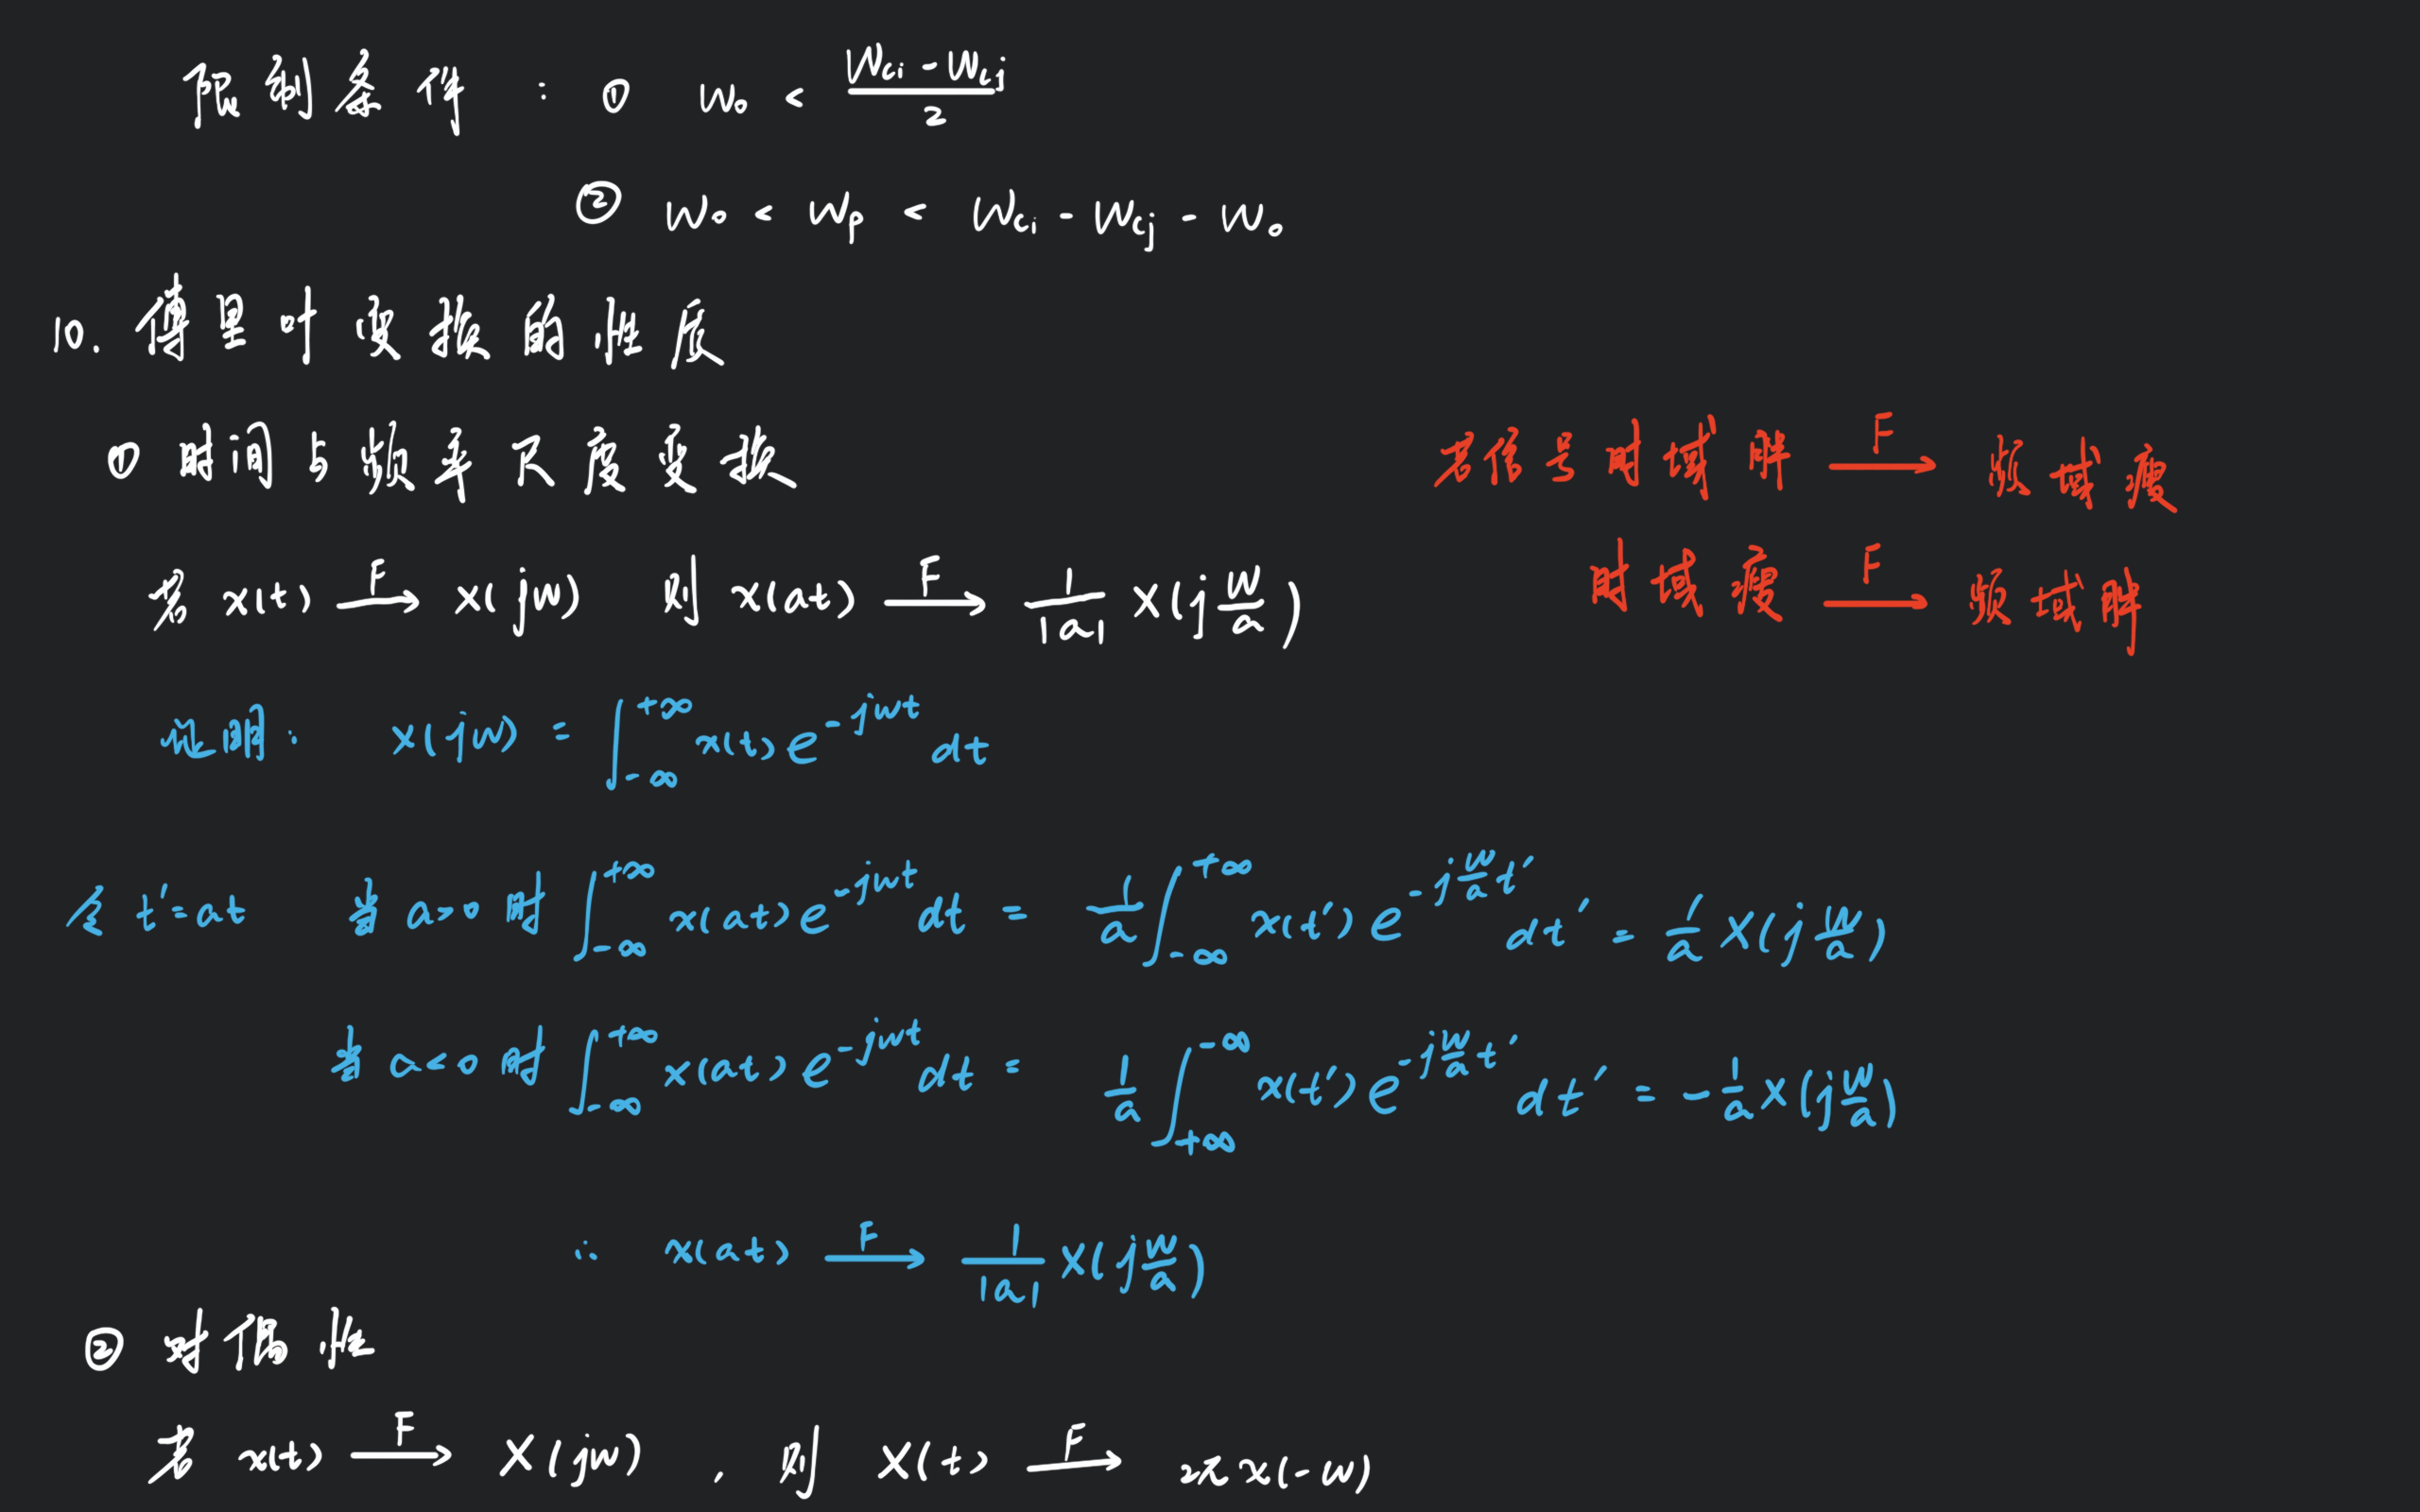 限制条件：① W₀ < (Wci - Wcj)/2
② W₀ < Wp < Wci - Wcj - W₀
10. 傅里叶变换的性质
① 时间与频率尺度变换
若信号时域胖 —F→ 频域瘦
时域瘦 —F→ 频域胖
若 x(t) —F→ X(jw) 则 x(at) —F→ 1/|a| X(j w/a)
证明： X(jw) = ∫_{-∞}^{+∞} x(t) e^{-jwt} dt
令 t' = at 当 a>0 时 ∫_{-∞}^{+∞} x(at) e^{-jwt} dt = 1/a ∫_{-∞}^{+∞} x(t') e^{-j w/a t'} dt' = 1/a X(j w/a)
当 a<0 时 ∫_{-∞}^{+∞} x(at) e^{-jwt} dt = 1/a ∫_{+∞}^{-∞} x(t') e^{-j w/a t'} dt' = -1/a X(j w/a)
∴ x(at) —F→ 1/|a| X(j w/a)
② 对偶性
若 x(t) —F→ X(jw) ，则 X(t) —F→ 2πx(-w)